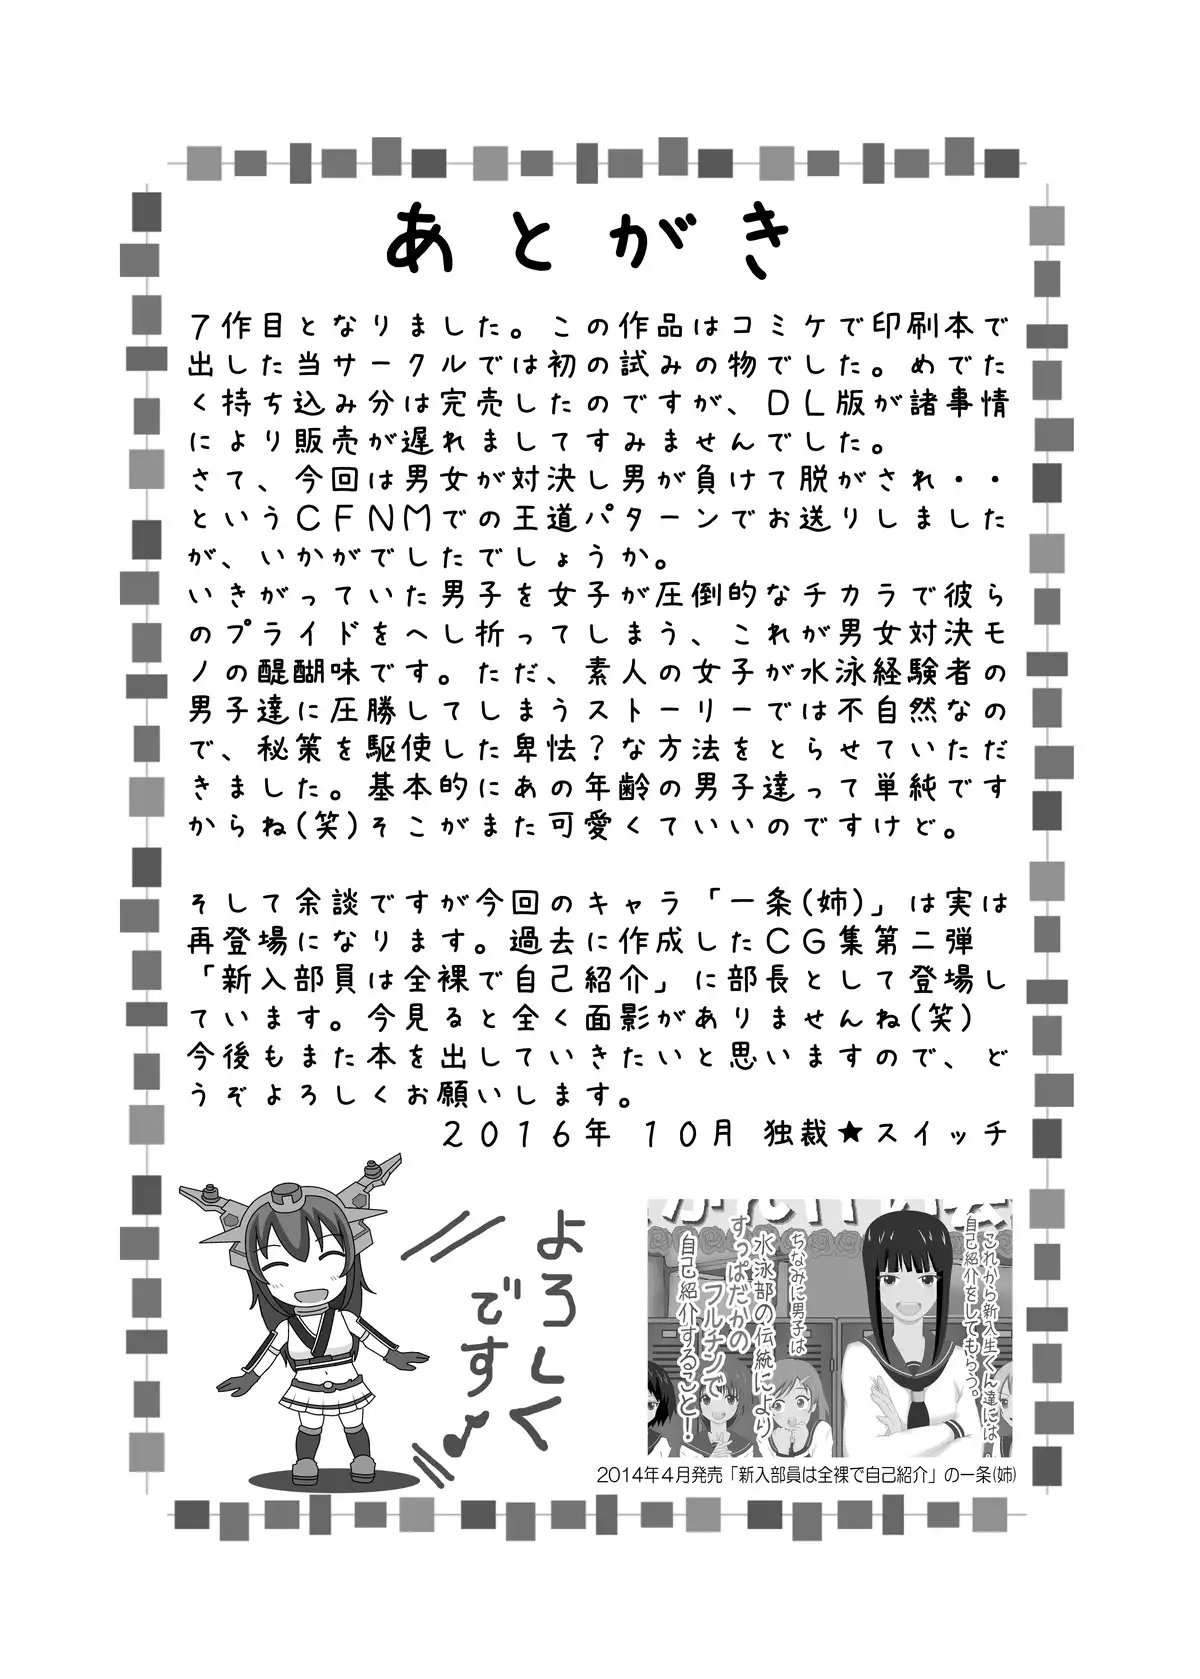 あとがき
７作目となりました。この作品はコミケで印刷本で
出した当サークルでは初の試みの物でした。めでた
く持ち込み分は完売したのですが、ＤＬ版が諸事情
により販売が遅れましてすみませんでした。
さて、今回は男女が対決し男が負けて脱がされ・・
というＣＦＮＭでの王道パターンでお送りしました
が、いかがでしたでしょうか。
いきがっていた男子を女子が圧倒的なチカラで彼ら
のプライドをへし折ってしまう、これが男女対決モ
ノの醍醐味です。ただ、素人の女子が水泳経験者の
男子達に圧勝してしまうストーリーでは不自然なの
で、秘策を駆使した卑怯？な方法をとらせていただ
きました。基本的にあの年齢の男子達って単純です
からね(笑)そこがまた可愛くていいのですけど。
そして余談ですが今回のキャラ「一条(姉)」は実は
再登場になります。過去に作成したＣＧ集第二弾
「新入部員は全裸で自己紹介」に部長として登場し
ています。今見ると全く面影がありませんね(笑)
今後もまた本を出していきたいと思いますので、ど
うぞよろしくお願いします。
２０１６年 １０月 独裁★スイッチ
よろしく
です
これから新入生くん達には
自己紹介をしてもらう。
ちなみに男子は
水泳部の伝統により
すっぱだかの
フルチンで
自己紹介すること！
2014年4月発売「新入部員は全裸で自己紹介」の一条(姉)